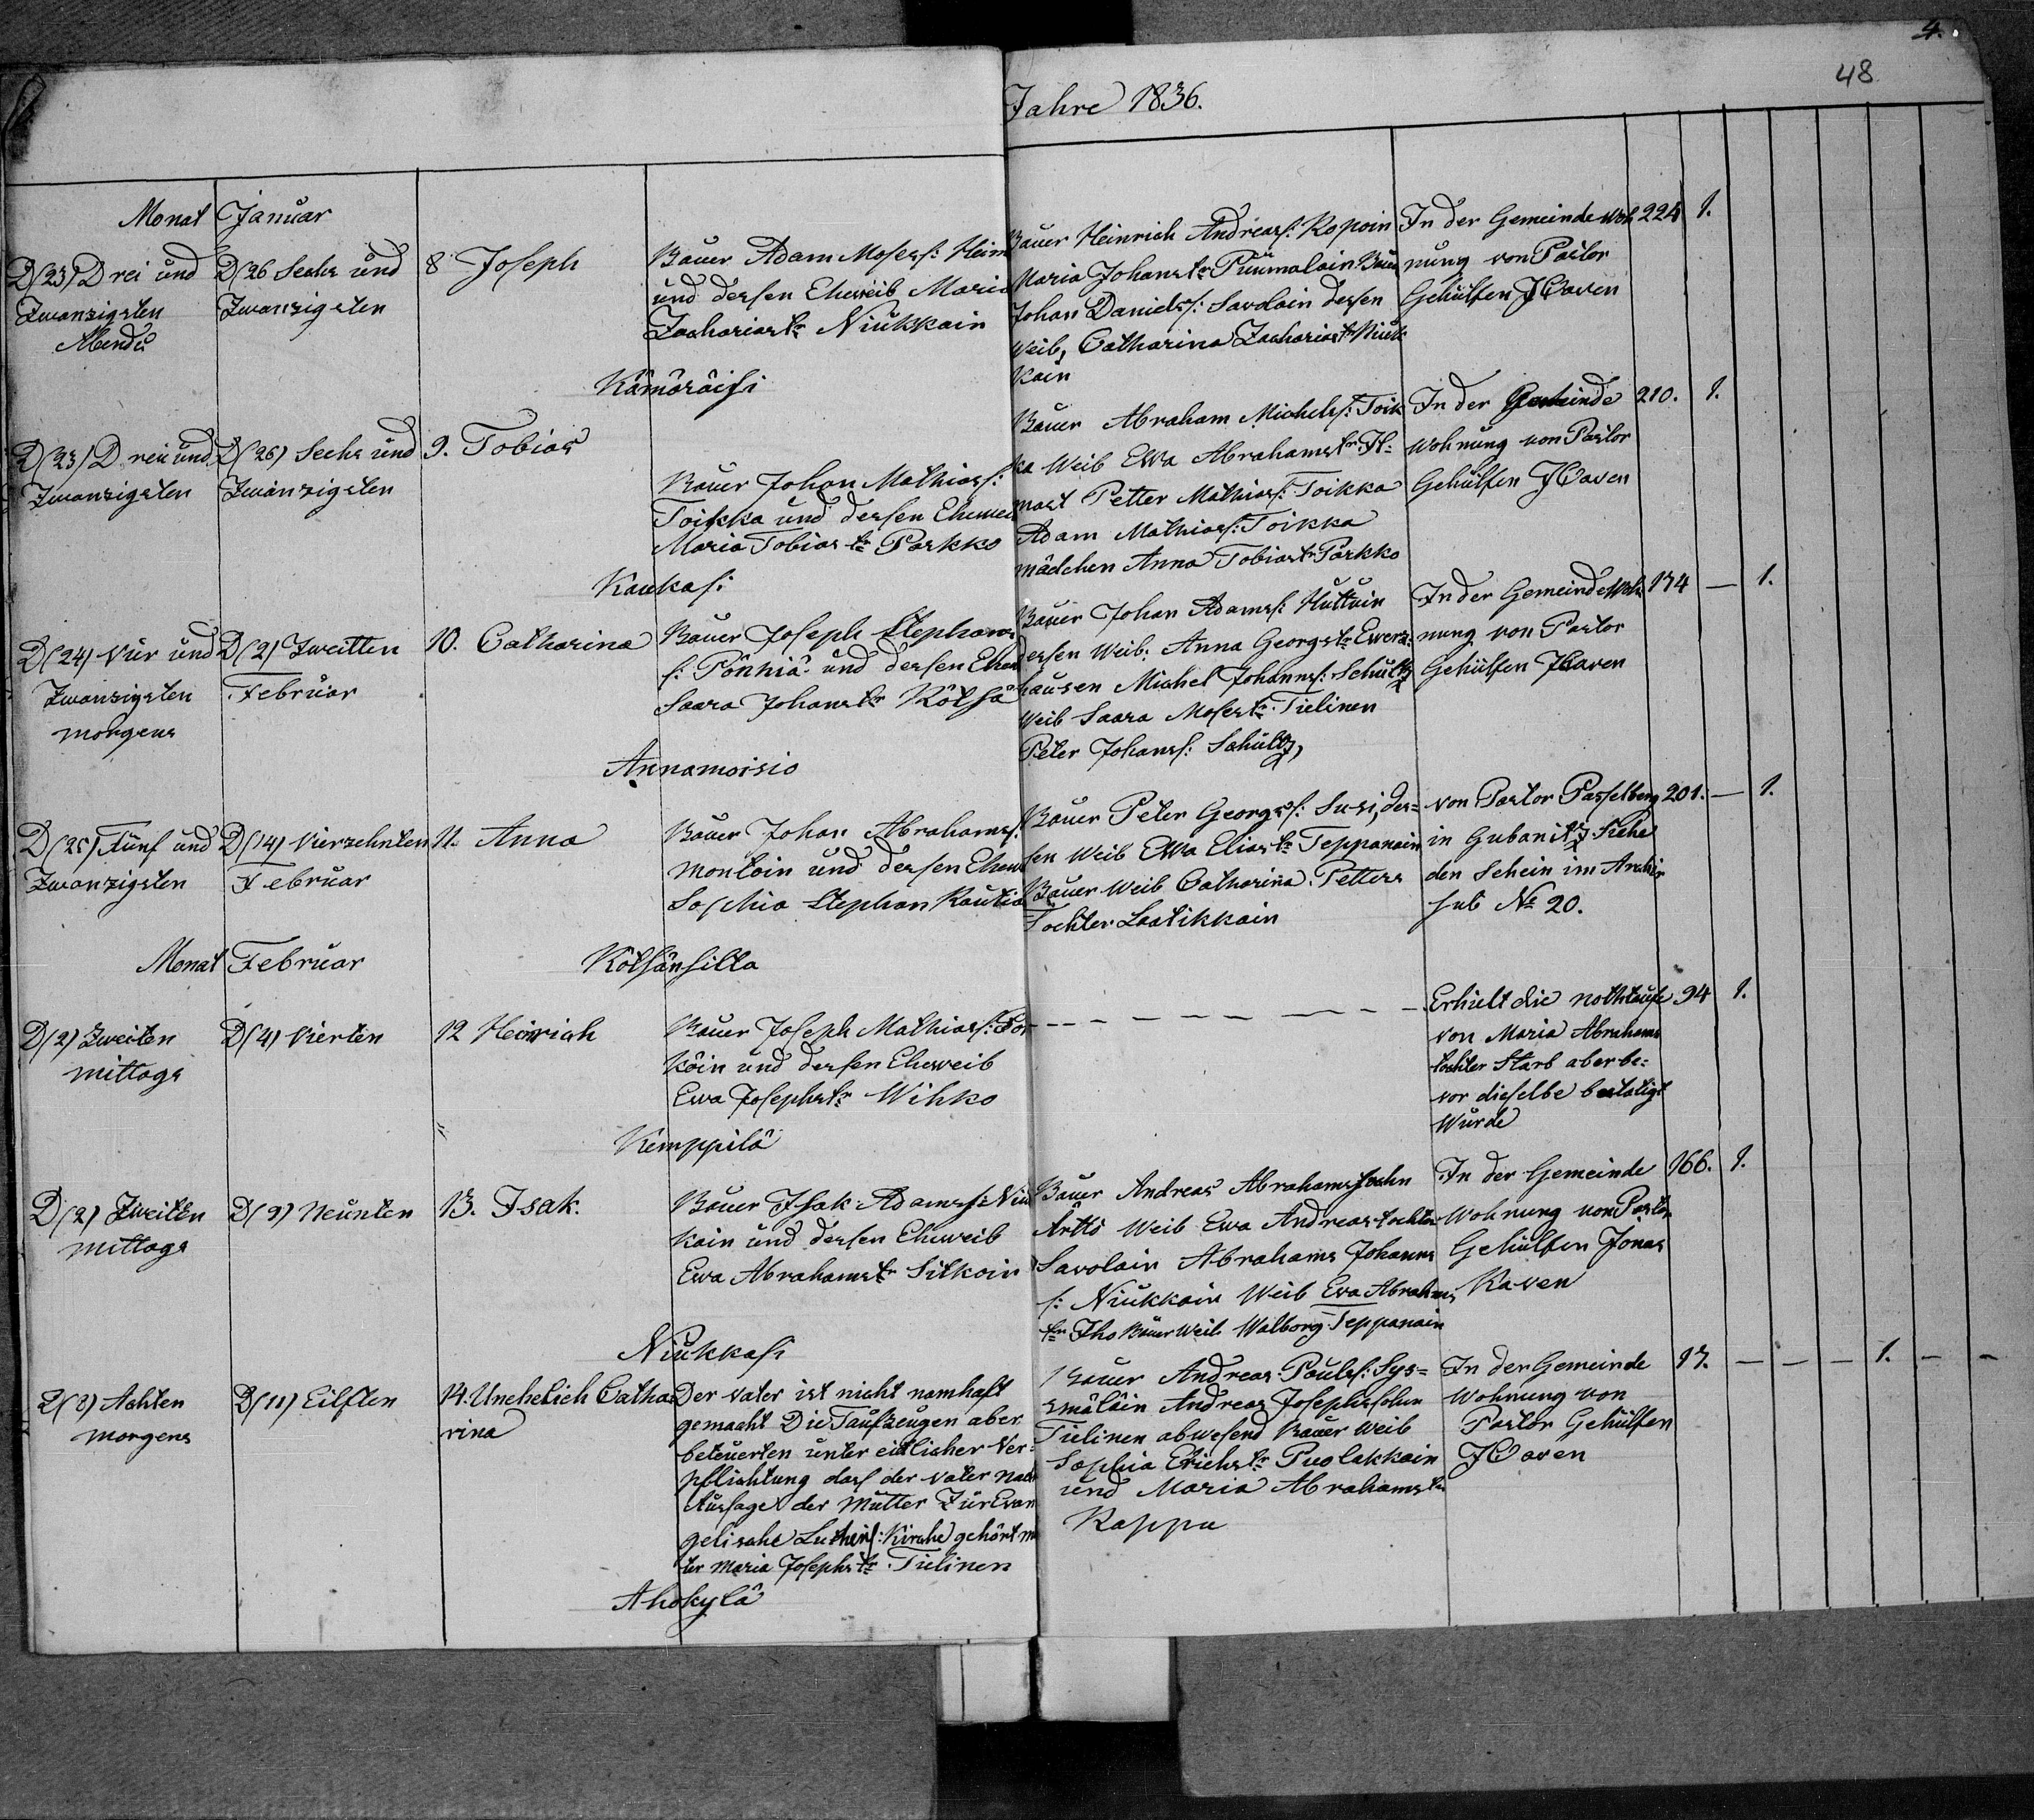 4.
48
Jahre 1836.
Monat Januar
D(23) Drei und
Zwanzigsten
Abends
D(26 Sechs und
Zwanzigsten
8 Joseph
Bauer Adam Moses s: Heim
und dessen Eheweib Maria
Zacharias tr Niukkain
Bauer Heinrich Andreas s: Kopoin
Maria Johans tr Puumalain Bau
Johan Daniels s: Savolain dessen
Weib, Catharina Zacharias tr Niuk
kain
In der Gemeinde Woh
nung von Pastor
Gehülfen JCaven
224 1.
Kämäräisi
D(23) Drei und
Zwanzigsten
D(26) Sechs und
Zwanzigsten
9. Tobias
Bauer Johan Mathias s:
Toikka und dessen Ehewei
Maria Tobias tr Parkko
Bauer Abraham Michels s: Toik
ka Weib Ewa Abrahams tr Il-
mast Petter Mathias s: Toikka
Adam Mathias s: Toikka
mädchen Anna Tobias tr Parkko
In der Gemeinde
Wohnung von Pastor
Gehülfen JCaven
210. 1.
Kaukasi
D(24) Vier und
Zwanzigsten
morgens
D(2) Zweitten
Februar
10. Catharina
Bauer Joseph Stephans
s: Pönniä und dessen Ehew
Saara Johans tr Kötsä
Bauer Johan Adams s: Huttuin
dessen Weib: Anna Georgs tr Ewerz-
hausen Michel Johanns s: Schultz
Weib Saara Moses tr Tielinen
Peter Johans s: Schultz,
In der Gemeinde Woh
nung von Pastor
Gehülfen JCaven
174 — 1.
Annamoisio
D(25) Fünf und
Zwanzigsten
D(14) Vierzehnten
Februar
11. Anna
Bauer Johan Abrahams s:
Montoin und dessen Ehew
Sophia Stephan Rautia
Bauer Peter Georgs s: Susi, des-
sen Weib Ewa Elias tr Teppanain
Bauer Weib Catharina Petters
Tochter Laatikkain
von Pastor Passelberg
in Gubanitz Siehe
den Schein im Archiv
sub № 20.
201. — 1.
Monat Februar
Kötsänsilta
D(2) Zweiten
mittags
D(4) Vierten
12 Heinrich
Bauer Joseph Mathias s: For
köin und dessen Eheweib
Ewa Josephs tr Wihko
— — — — — — — —
Erhielt die nothtaufe
von Maria Abrahams
tochter Starb aber be-
vor dieselbe bestätigt
Würde
94 1.
Kemppilä
D(2) Zweiten
mittags
D(9) Neunten
13. Isak.
Bauer Isak Adams s: Niu
kain und dessen Eheweib
Ewa Abrahams tr Sitkoin
Bauer Andreas Abrahams sohn
Ärttö Weib Ewa Andreas tochter
Savolain Abrahams Johanns
s: Niukkain Weib Ewa Abrahms
tr Iho Bauer Weib Walborg Teppanain
In der Gemeinde
Wohnung von Pastor
Gehülfen Jonas
Kaven
166. 1.
Niukkasi
D(8) Achten
morgens
D(11) Eilften
14. Unehelich Catha
rina
Der vater ist nicht namhaft
gemacht Die Taufzeugen aber
beteuerten unter eidlicher Ver-
pflichtung dass der vater nach
Aussage der Mutter Zur Evan
gelische Luther s: Kirche gehört mu
ter Maria Josephs tr Tielinen
Bauer Andreas Pouls s: Sys-
mäläin Andreas Josephs sohn
Tielinen abwesend Bauer Weib
Sophia Erichs tr Puolakkain
und Maria Abrahams tr
Kappu
In der Gemeinde
Wohnung von
Pastor Gehülfen
JCaven
17. — — — 1. — —
Ahokylä